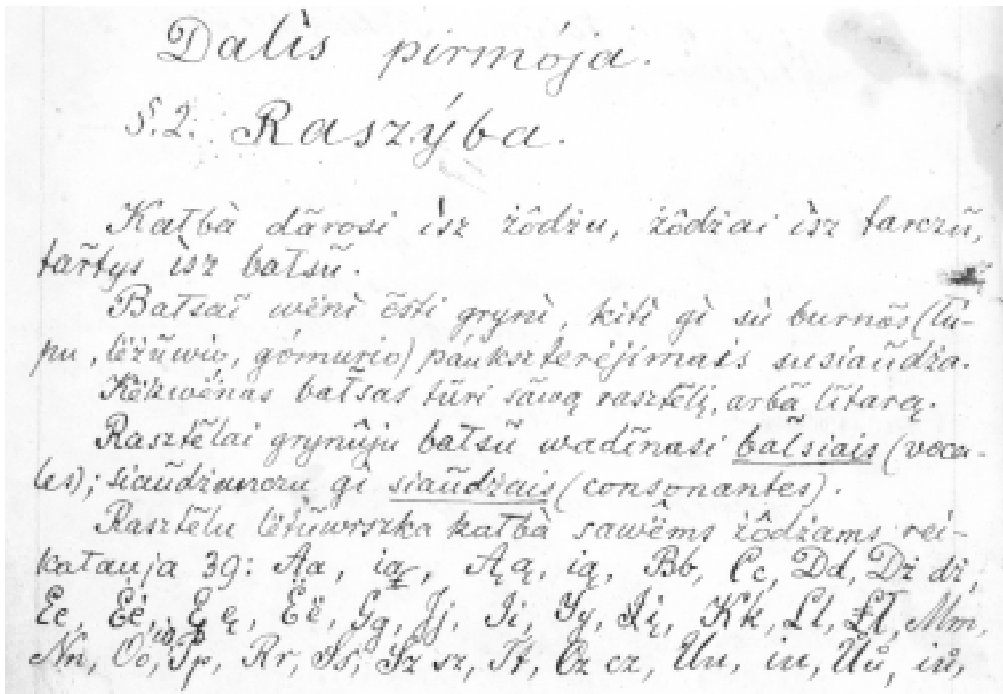 Dalìs pirmója.
§. 2. Raszýba.
Kałbà dãrosi ìsz żôdżu, żôdżai ìsz tarczũ,
tar̃tys ìsz bałsũ.
Bałsaĩ wënì ẽsti grynì, kitì gi sù burnõs (lú-
pu, lëżùwio, gómurio) páuksterėjimais susiaũdża.
Këkwënas bal̃sas tùri sãwą rasztẽlį, arbà lìtarą.
Rasztẽlai grynûju bałsũ wadĩnasi bal̃siais (voca-
les); siaũdżanczu gi siaũdżais (consonantes).
Rasztẽlu lëtùwiszka kałbà sawëms żôdżams rei-
kałauja 39: Aa, ia, Ąą, ią, Bb, Cc, Dd, Dż dż,
Ee, Ėė, Ęę, Ëë, Gg, Jj, Ii, Yy, Įį, Kk, Ll, Łł, Mm,
Nn, Oo, io, Pp, Rr, Ss, Sz sz, Tt, Cz cz, Uu, iu, Ůů, iů,